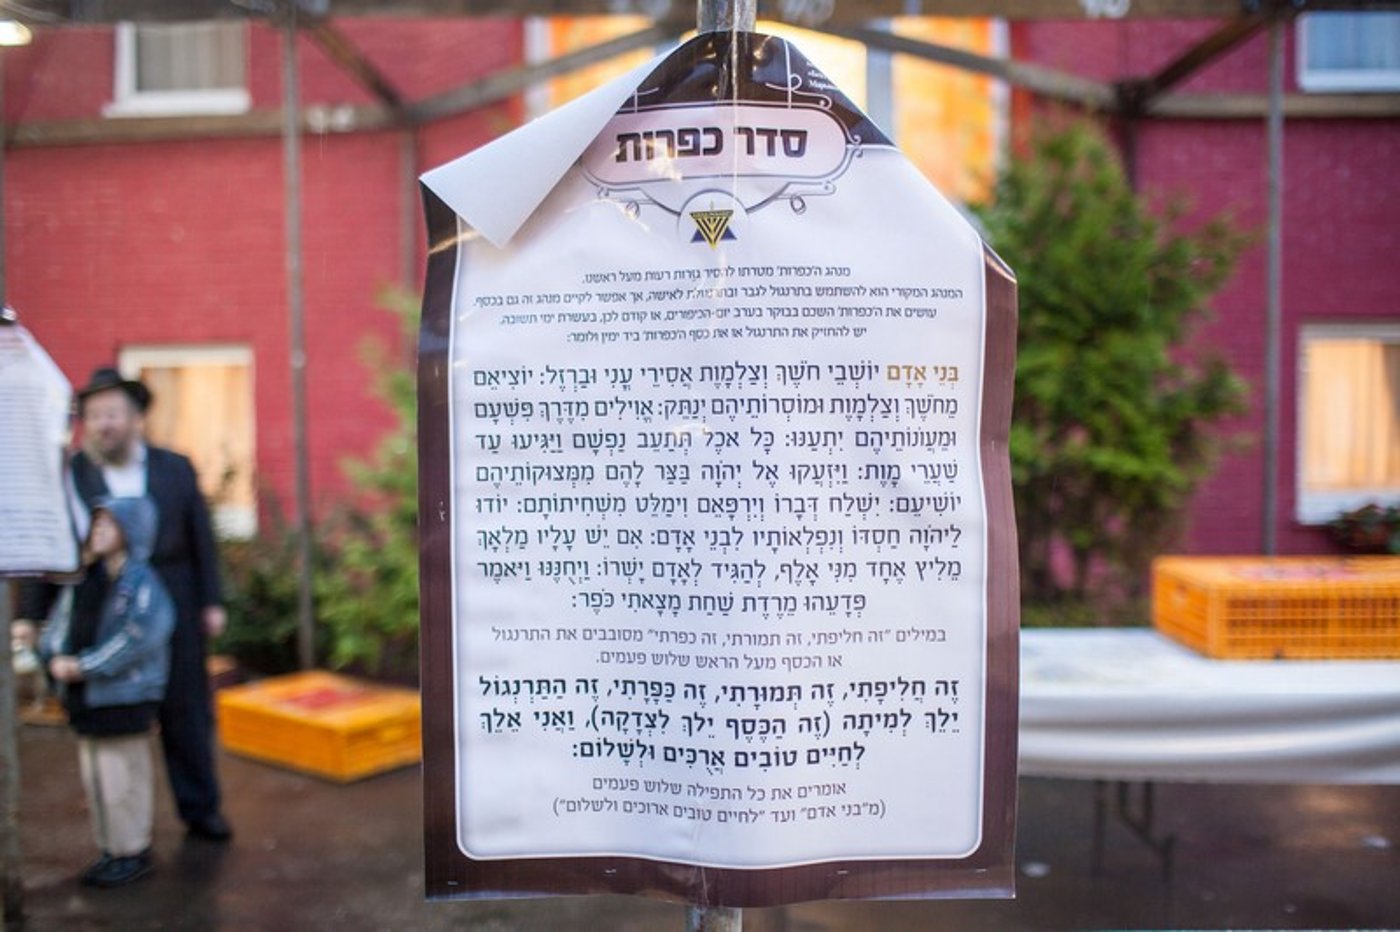 סדר כפרות
מנהג ה'כפרות' מטרתו להסיר גזרות רעות מעל ראשנו.
המנהג המקורי הוא להשתמש בתרנגול לגבר ובתרנגולת לאישה, אך אפשר לקיים מנהג זה גם בכסף.
עושים את ה'כפרות' השכם בבוקר בערב יום-הכיפורים, או קודם לכן, בעשרת ימי תשובה.
יש להחזיק את התרנגול או את כסף ה'כפרות' ביד ימין ולומר:
בְּנֵי אָדָם יוֹשְׁבֵי חֹשֶׁךְ וְצַלְמָוֶת אֲסִירֵי עֳנִי וּבַרְזֶל: יוֹצִיאֵם
מֵחֹשֶׁךְ וְצַלְמָוֶת וּמוֹסְרוֹתֵיהֶם יְנַתֵּק: אֱוִילִים מִדֶּרֶךְ פִּשְׁעָם
וּמֵעֲוֹנוֹתֵיהֶם יִתְעַנּוּ: כָּל אֹכֶל תְּתַעֵב נַפְשָׁם וַיַּגִּיעוּ עַד
שַׁעֲרֵי מָוֶת: וַיִּזְעֲקוּ אֶל יְהֹוָה בַּצַּר לָהֶם מִמְּצוּקוֹתֵיהֶם
יוֹשִׁיעֵם: יִשְׁלַח דְּבָרוֹ וְיִרְפָּאֵם וִימַלֵּט מִשְּׁחִיתוֹתָם: יוֹדוּ
לַיהֹוָה חַסְדּוֹ וְנִפְלְאוֹתָיו לִבְנֵי אָדָם: אִם יֵשׁ עָלָיו מַלְאָךְ
מֵלִיץ אֶחָד מִנִּי אָלֶף, לְהַגִּיד לְאָדָם יָשְׁרוֹ: וַיְחֻנֶּנּוּ וַיֹּאמֶר
פְּדָעֵהוּ מֵרֶדֶת שַׁחַת מָצָאתִי כֹפֶר:
במילים "זה חליפתי, זה תמורתי, זה כפרתי" מסובבים את התרנגול
או הכסף מעל הראש שלוש פעמים.
זֶה חֲלִיפָתִי, זֶה תְּמוּרָתִי, זֶה כַּפָּרָתִי, זֶה הַתַּרְנְגוֹל
יֵלֵךְ לְמִיתָה (זֶה הַכֶּסֶף יֵלֵךְ לִצְדָקָה), וַאֲנִי אֵלֵךְ
לְחַיִּים טוֹבִים אֲרֻכִּים וּלְשָׁלוֹם:
אומרים את כל התפילה שלוש פעמים
(מ"בני אדם" ועד "לחיים טובים ארוכים ולשלום")